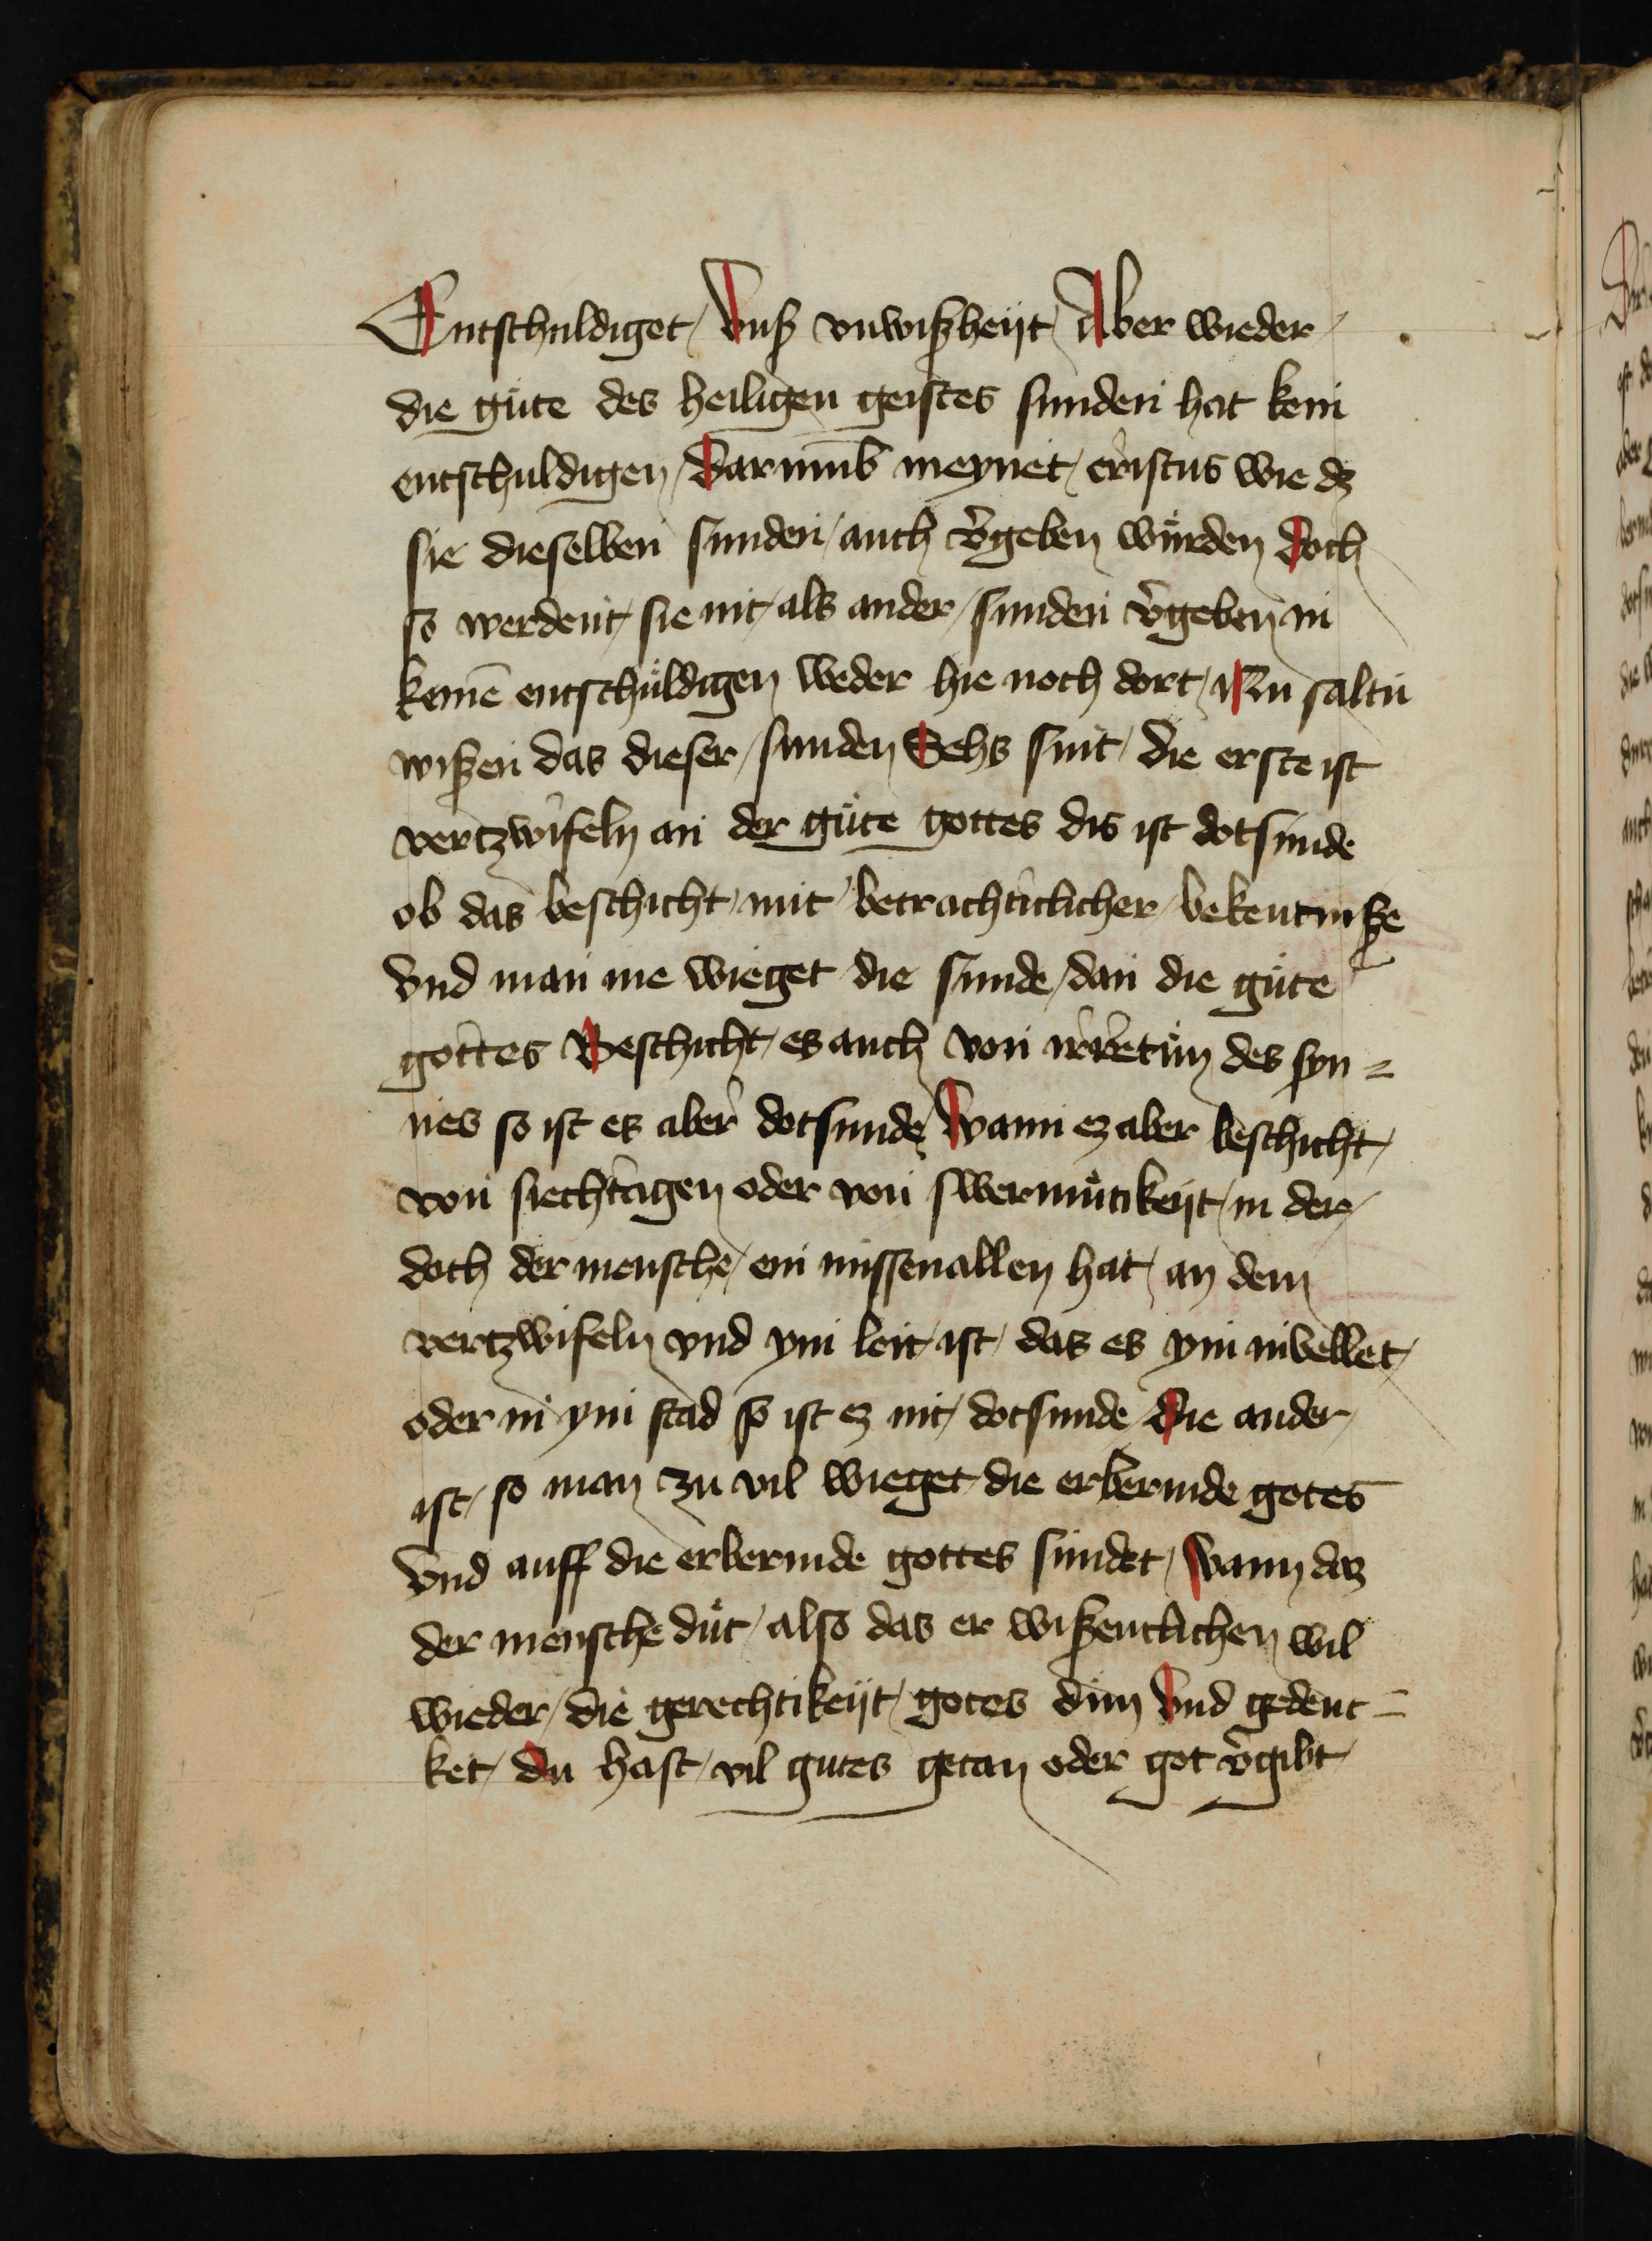 Entschuldiget / Vnß vnwißheijt / Aber wieder /
die güte des heiligen geistes sunden hat kein
entschuldigen / Darumb meynet / cristus wie dz
sie dieselben sunden / auch v̉geben würden Doch
so werdent / sie nit / als ander / sunden v̉geben in
keinē entschüldigen weder hie noch dort / Nu saltu
wißen das dieser / sunden Sehs sint / die erste ist
vertzwifeln an der güte gottes dis ist dotsunde
ob das beschicht / mit betrachticlicher / bekentniße
Vnd man me wieget die sunde / dan die güte
gottes Beschicht / es auch von irretum des syn =
nes so ist es aber dotsunde / Wann ez aber beschicht /
von siechtagen oder von swermütikeijt / in der /
doch der mensche / ein missevallen hat / an dem
vertzwifeln vnd ym leit / ist / das es ym invellet /
oder in ym stad so ist ez nit / dotsunde Die ander /
ist / so man zu vil wieget / die erbermde gotes
Vnd auff die erbermde gottes sundet / Wann das
der mensche düt / also das er wißentlichen wil
wieder / die gerechtikeijt / gotes dun Vnd gedenc =
ket / Du hast / vil gutes getan oder got v̉gibt /